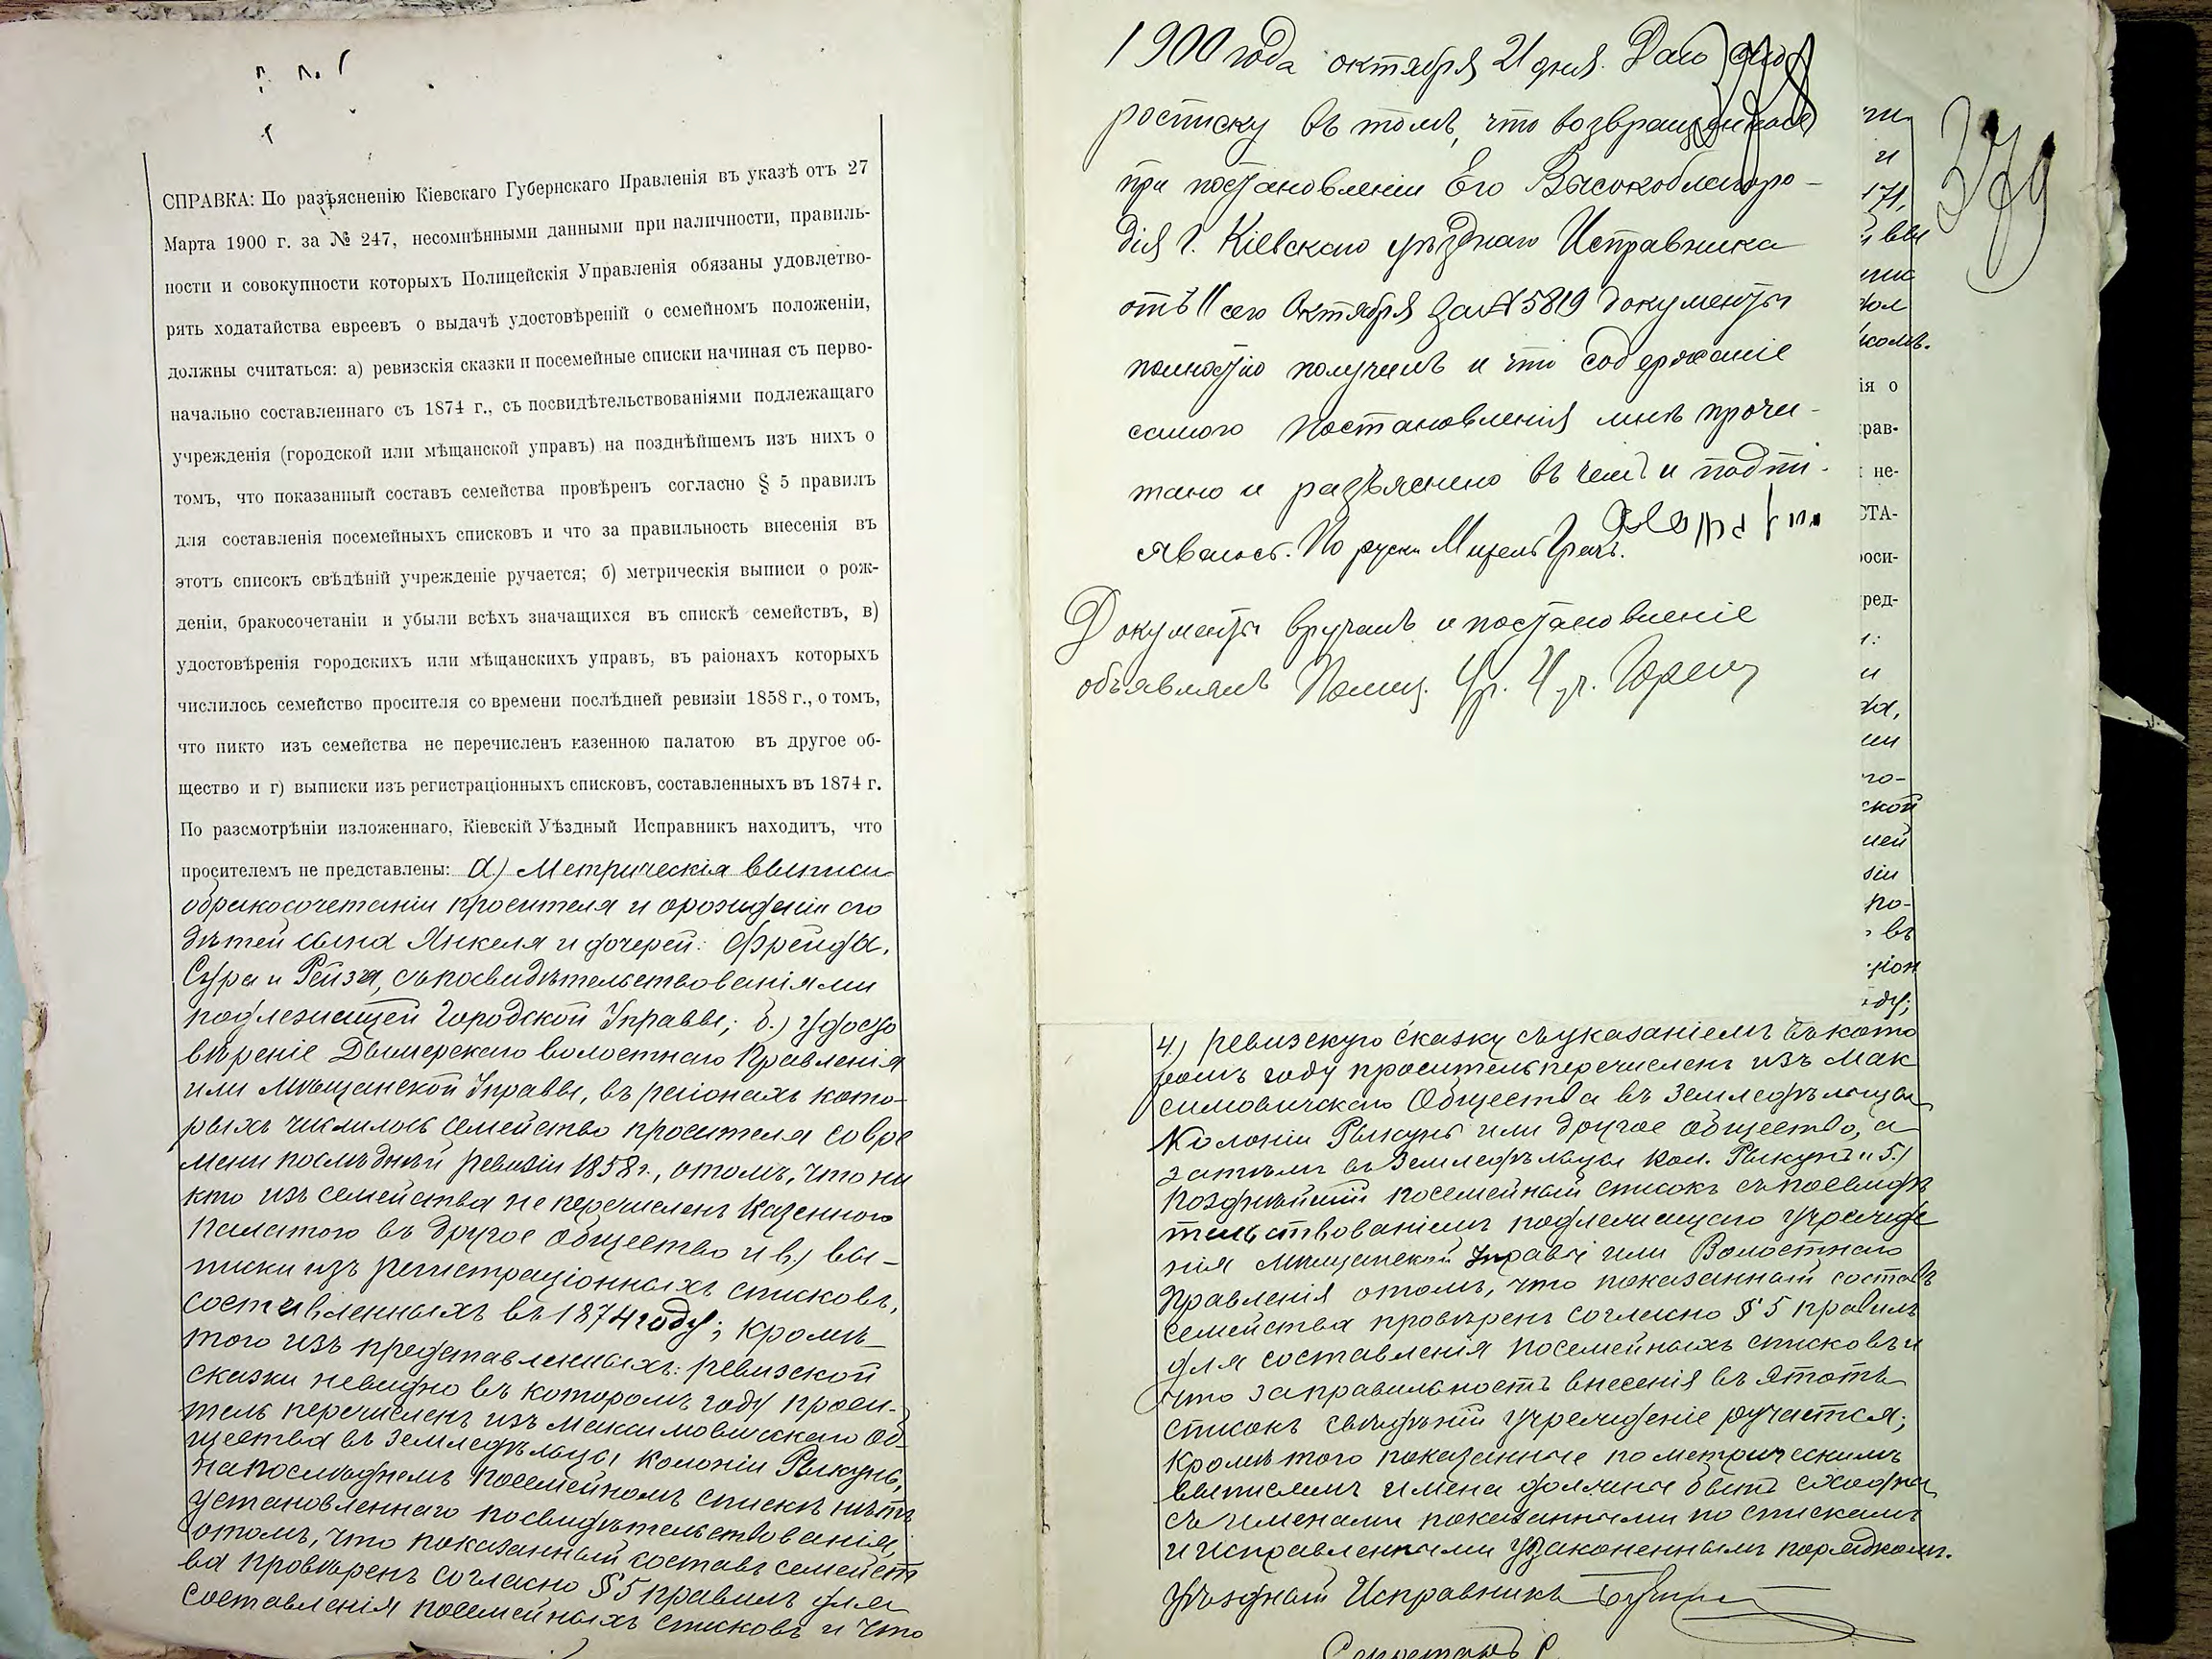 СПРАВКА: По разъясненію Кіевскаго Губернскаго Правленія въ указѣ отъ 27
Марта 1900 г. за № 247, несомнѣнными данными при наличности, правиль-
ности и совокупности которыхъ Полицейскія Управленія обязаны удовлетво-
рять ходатайства евреевъ о выдачѣ удостовѣреній о семейномъ положеніи,
должны считаться: а) ревизскія сказки и посемейные списки начиная съ перво-
начально составленнаго съ 1874 г., съ посвидѣтельствованіями подлежащаго
учрежденія (городской или мѣщанской управъ) на позднѣйшемъ изъ нихъ о
томъ, что показанный составъ семейства провѣренъ согласно § 5 правилъ
для составленія посемейныхъ списковъ и что за правильность внесенія въ
этотъ списокъ свѣдѣній учрежденіе ручается; б) метрическія выписи о рож-
деніи, бракосочетаніи и убыли всѣхъ значащихся въ спискѣ семействъ, в)
удостовѣренія городскихъ или мѣщанскихъ управъ, въ раіонахъ которыхъ
числилось семейство просителя со времени послѣдней ревизіи 1858 г., о томъ,
что никто изъ семейства не перечисленъ казенною палатою въ другое об-
щество и г) выписки изъ регистраціонныхъ списковъ, составленныхъ въ 1874 г.
По разсмотрѣніи изложеннаго, Кіевскій Уѣздный Исправникъ находитъ, что
просителемъ не представлены: а.) Метрическія выписи
о бракосочетаніи просителя и о рожденіи его
дѣтей сына Янкеля и дочерей: Фрейда,
Сура и Рейзя, съ посвидѣтельствованіями
подлежащей Городской Управы; б.) удосто
вѣреніе Дымерскаго волостнаго Правленія
или Мѣщанской Управы, въ раіонахъ кото-
рыхъ числилось семейство просителя со вре
мени послѣдней ревизіи 1858 г., о томъ, что ни
кто изъ семейства не перечисленъ Казенною
Палатою въ другое общество и в.) вы-
писки изъ регистраціонныхъ списковъ,
составленныхъ въ 1874 году; кромѣ
того изъ представленныхъ: ревизской
сказки невидно въ которомъ году проси-
тель перечисленъ изъ Максимовичскаго Об-
щества въ земледѣльцы колоніи Рыкунь,
на послѣднемъ посемейномъ спискѣ нѣтъ
установленнаго посвидѣтельствованія,
о томъ, что показанный составъ семейст
ва провѣренъ согласно § 5 правилъ для
составленія посемейныхъ списковъ и что
1900 года октября 21 дня. Даю сію
росписку въ томъ, что возвращенные
при постановленіи Его Высокоблагоро-
дія г. Кіевскаго уѣзднаго Исправника
отъ 11 сего Октября за № 5819 документы
полностію получилъ и что содержаніе
самого постановленія мнѣ прочи-
тано и разъяснено въ чемъ и подпи-
Документы вручилъ и постановленіе
объявлялъ
379
ти
и
171,
ія о
рав-
не-
СТА-
роси-
ред-
и
го-
ской
ней
зіи
по-
въ
ду;
4.) ревизскую сказку съ указаніемъ въ кото
ромъ году проситель перечисленъ изъ Мак
симовичскаго Общества въ земледѣльцы
Колоніи Рыкунь или другое общество, а
затѣмъ въ земледѣльцы кол. Рыкунь и 5.)
позднѣйшій посемейный списокъ съ посвидѣ
тельствованіемъ подлежащаго учрежде
нія Мѣщанской Управы или Волостнаго
Правленія о томъ, что показанный составъ
семейства провѣренъ согласно § 5 правилъ
для составленія посемейныхъ списковъ и
что за правильность внесенія въ этотъ
списокъ свѣдѣній учрежденіе ручается;
кромѣ того показанные по метрическимъ
выписямъ имена должны быть сходны
съ именами показанными по спискамъ
и исправленными узаконеннымъ порядкомъ.
Уѣздный Исправникъ